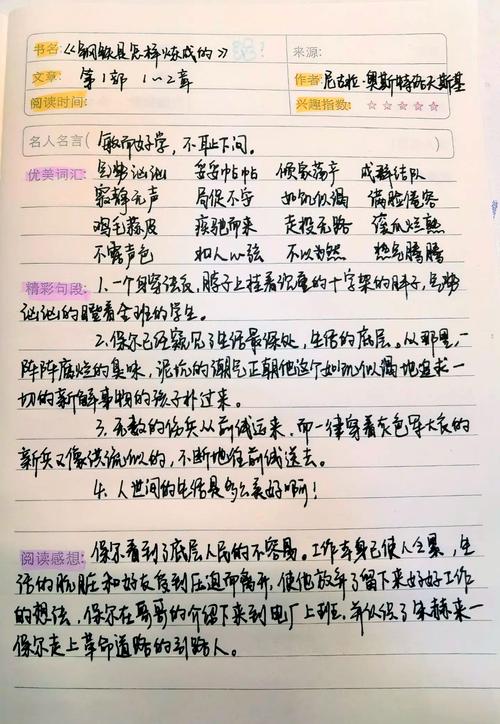 书名:《钢铁是怎样炼成的》 来源:
文章: 第1部 1~2章 作者 尼古拉·奥斯特洛夫斯基
阅读时间: 兴趣指数: ☆☆☆☆☆
名人名言( 敏而好学,不耻下问。 )
优美词汇: 气势汹汹 妥妥帖帖 倾家荡产 成群结队
寂静无声 局促不安 如饥似渴 满脸倦容
鸡毛蒜皮 疾驰而来 走投无路 滚瓜烂熟
不露声色 扣人心弦 不以为然 热气腾腾
精彩句段: 1.一个身穿法衣,脖子上挂着沉重的十字架的胖子,气势
汹汹的瞪着全班的学生。
2.保尔已经窥见了生活最深处,生活的底层。从那里一
阵阵腐烂的臭味,泥坑的潮气正朝他这个如饥似渴地追求一
切的新鲜事物的孩子扑过来。
3.无数的伤兵从前线运来,而一律穿着灰色军大衣的
新兵又像洪流似的,不断地往前线送去。
4.人世间的生活是多么美好啊!
阅读感想: 保尔看到了底层人民的不容易。工作本身已使人乏累,生
活的肮脏和好友受到压迫而离开,使他放弃了留下来好好工作
的想法,保尔在哥哥的介绍下来到电厂上班,并认识了朱赫来一
保尔走上革命道路的引路人。